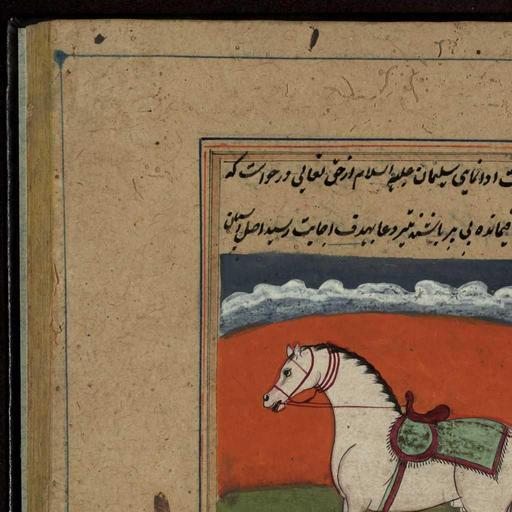 سلیمان علیه السلام از حق تعالی درخواست که
بی بر باشند تیر دعا بهدف اجابت رسید اصل